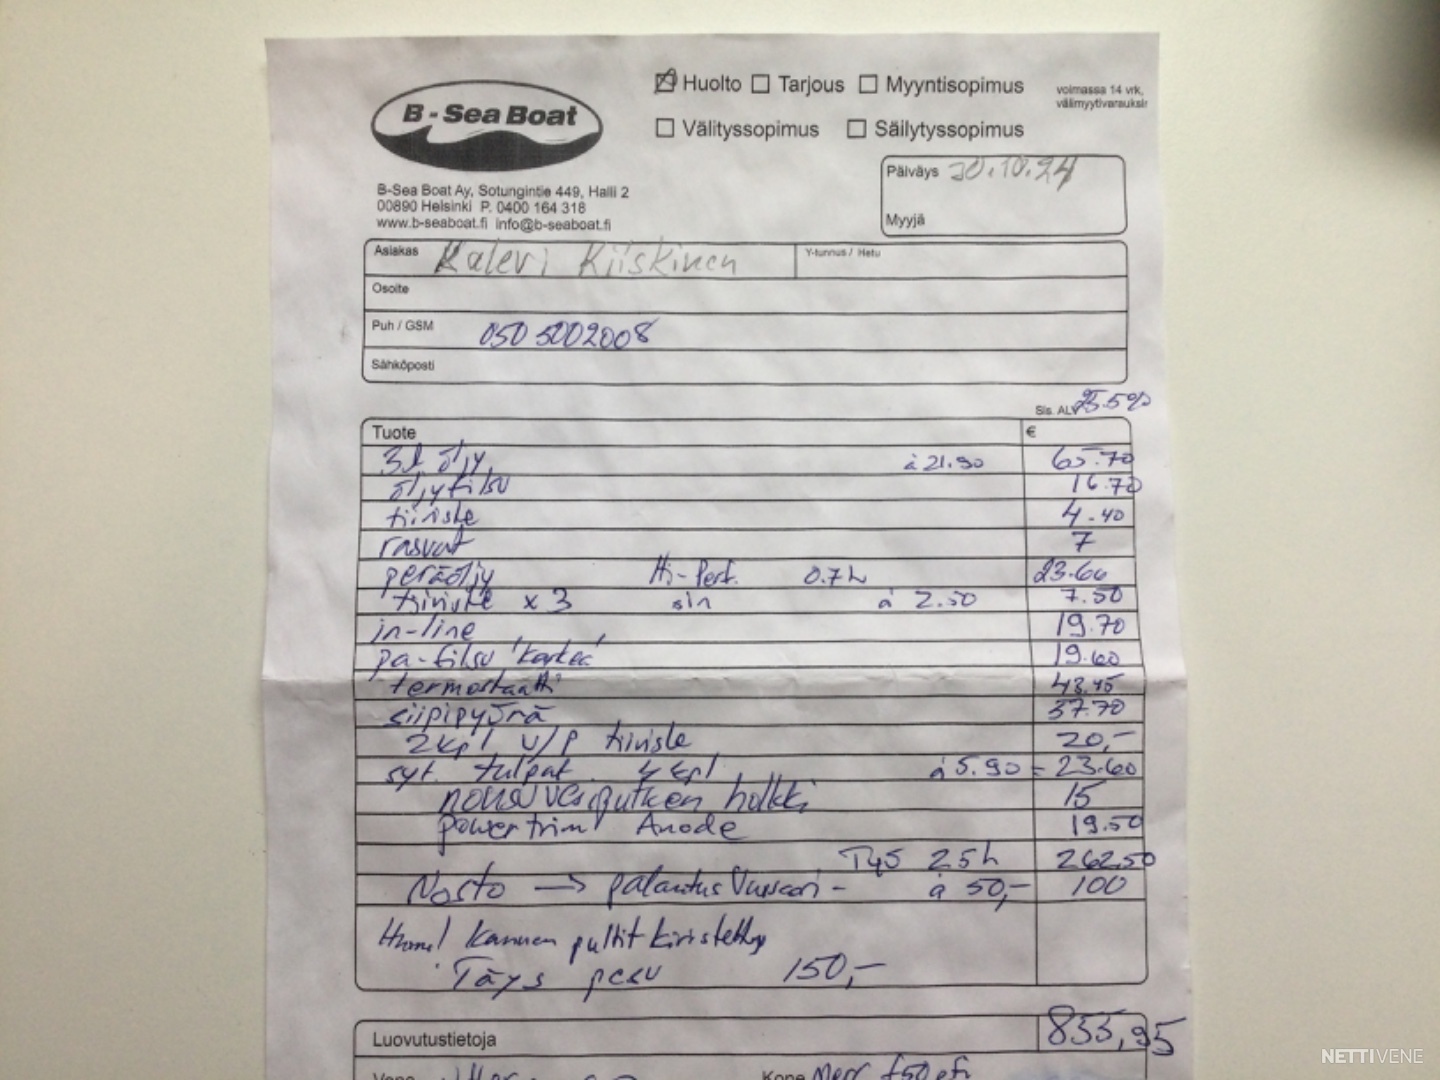 B - Sea Boat
☒ Huolto ☐ Tarjous ☐ Myyntisopimus
☐ Välityssopimus ☐ Säilytyssopimus
voimassa 14 vrk,
välimyytivarauksin
B-Sea Boat Ay, Sotungintie 449, Halli 2
00890 Helsinki P. 0400 164 318
www.b-seaboat.fi info@b-seaboat.fi
Päiväys 30.10.24
Myyjä
Asiakas Kalevi Kiiskinen Y-tunnus / Hetu
Osoite
Puh / GSM 050 5002008
Sähköposti
Sis. ALV 25.5%
Tuote €
3L öljy á 21.90 65.70
öljyfilsu 16.70
tiiviste 4.40
rasvat 7
peräöljy Hi-Perf. 0.7L 23.60
tiiviste x 3 sin á 2.50 7.50
in-line 19.70
pa-filsu 'karkea' 19.60
termostaatti 43.45
siipipyörä 37.70
2kpl v/p tiiviste 20,-
syt. tulpat 4 kpl á 5.90 = 23.60
nousuvesiputken holkki 15
powertrim Anode 19.50
Työ 2.5h 262.50
Nosto → palautus Vuosaari - á 50,- 100
Huom! Kannen pultit kiristetty
Täys pesu 150,-
Luovutustietoja 855,95
Vene
Kone Merc f50 efi
NETTIVENE